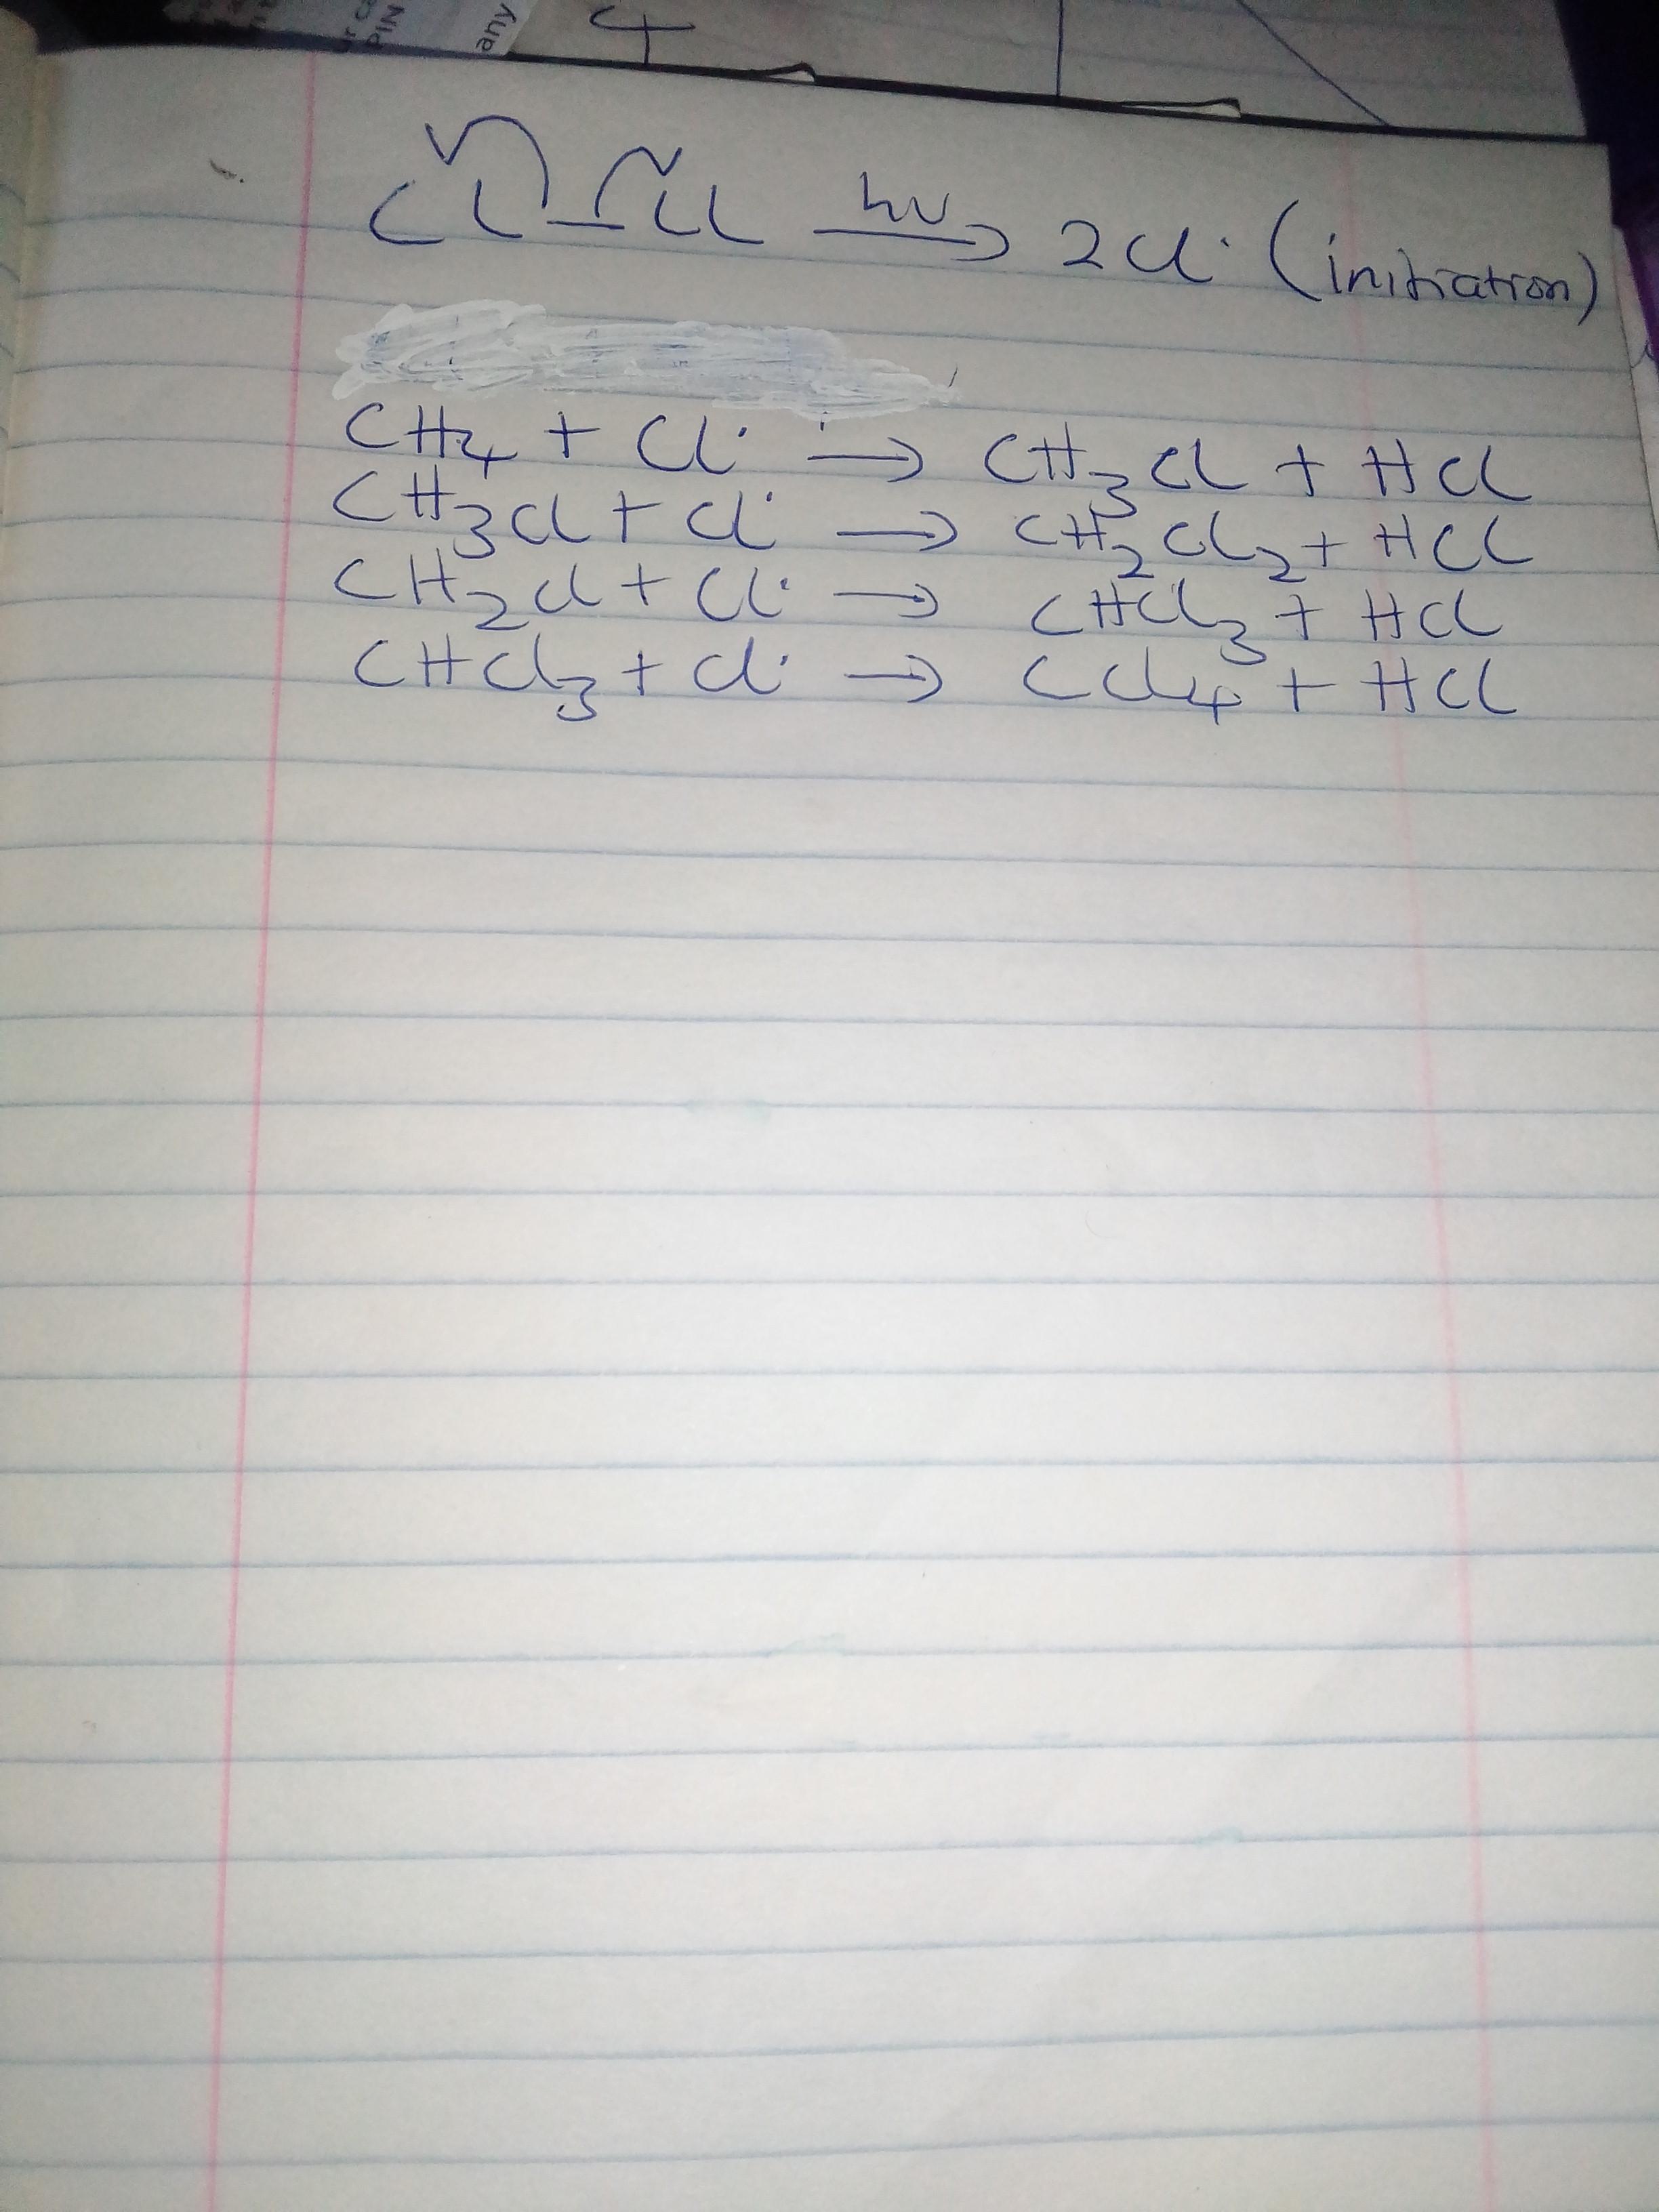 any
PIN
4
Cl–Cl hv→ 2Cl· (initiation)
CH₄ + Cl· → CH₃Cl + HCl
CH₃Cl + Cl· → CH₂Cl₂ + HCl
CH₂Cl + Cl· → CHCl₃ + HCl
CHCl₃ + Cl· → CCl₄ + HCl